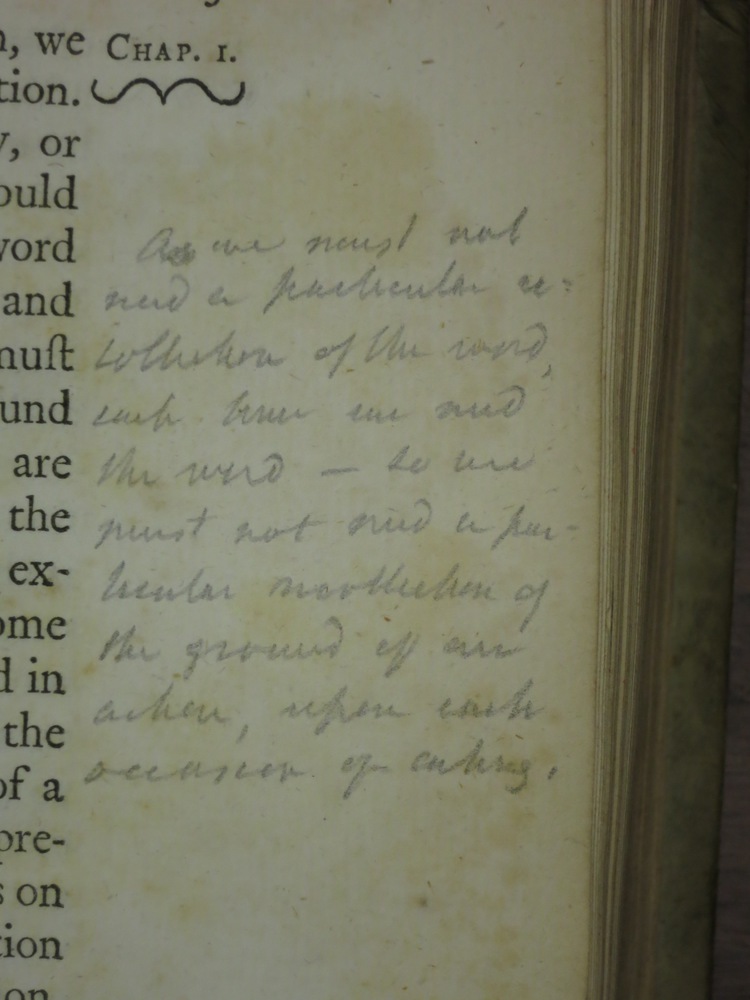 n, we CHAP. I.
tion.
y, or
ould
word
and
muſt
und
are
the
ex-
ome
d in
the
of a
pre-
s on
tion
on.
As we must not
need a particular re-
collection of the word,
each time we need
the word — so we
must not need a par-
ticular recollection of
the ground of our
action, upon each
occasion of acting.